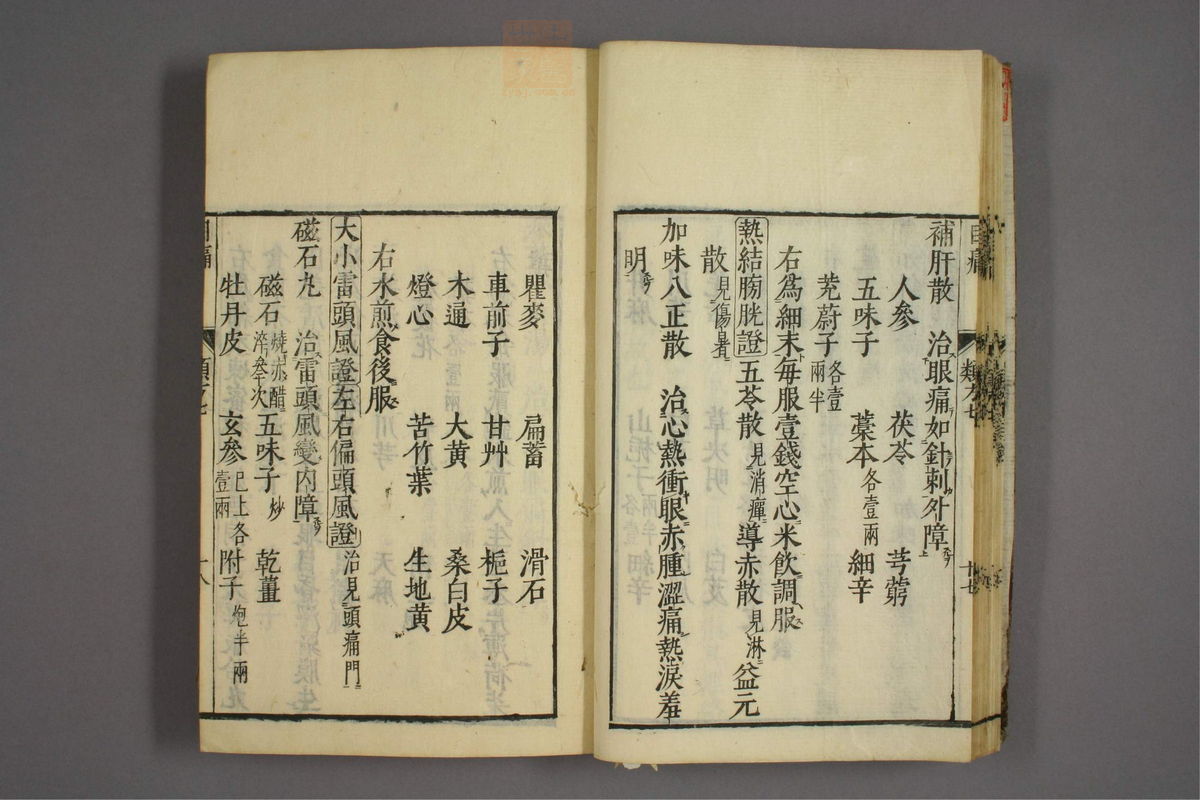 目痛 類方七 十七
補肝散 治眼痛如針刺外障
人參 茯苓 芎藭
五味子 藁本各壹兩 細辛
茺蔚子各壹兩半
右爲細末每服壹錢空心米飲調服
熱結膀胱證 五苓散見消癉 導赤散見淋 益元
散見傷暑
加味八正散 治心熱衝眼赤腫澀痛熱淚羞
明
瞿麥 扁蓄 滑石
車前子 甘艸 梔子
木通 大黄 桑白皮
燈心 苦竹葉 生地黄
右水煎食後服
大小雷頭風證 左右偏頭風證 治見頭痛門
磁石丸 治雷頭風變内障
磁石燒赤醋淬叁次 五味子炒 乾薑
牡丹皮 玄參已上各壹兩 附子炮半兩
目痛 類方七 十八